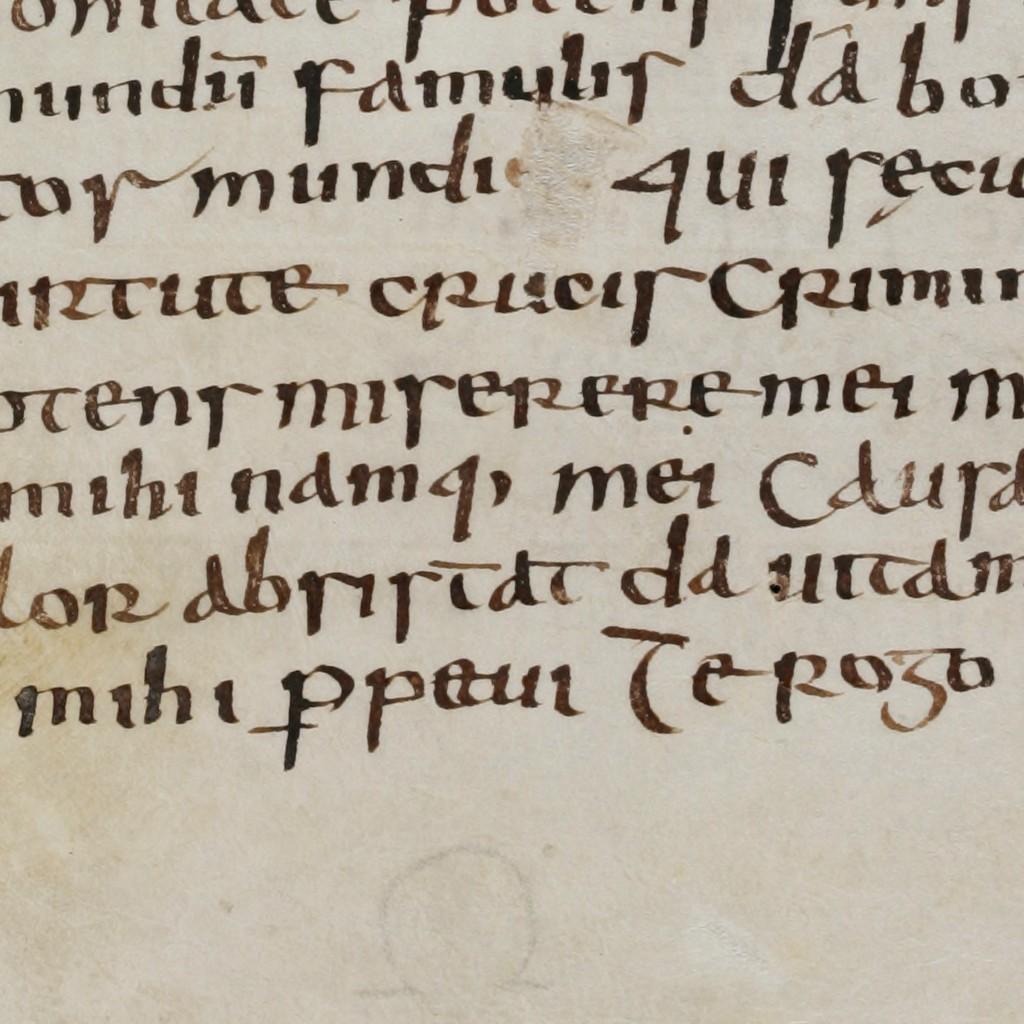 onitate potens
mundū famulis da bo
tor mundi qui secu
irtute crucis Crimin
otens miserere mei m
mihi namq, mei Causa
lor absistat da uitam
mihi ppetui Te rogo
Ω